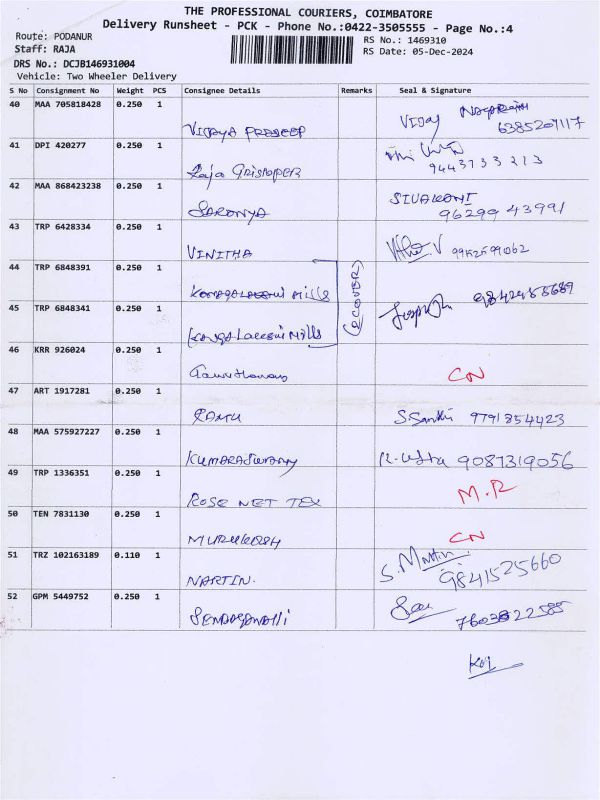 THE PROFESSIONAL COURIERS, COIMBATORE
Delivery Runsheet - PCK - Phone No.:0422-3505555 - Page No.:4
Route: PODANUR
RS No.: 1469310
Staff: RAJA
RS Date: 05-Dec-2024
DRS No.: DCJB146931004
Vehicle: Two Wheeler Delivery
S No Consignment No Weight PCS Consignee Details Remarks Seal & Signature
40 MAA 705818428 0.250 1
VIJAYA PRADEEP VIJAY
6385207117
41 DPI 420277 0.250 1
Raja Gristoper 9443733213
42 MAA 868423238 0.250 1
SARONYA SIVAKAMI
96299 43991
43 TRP 6428334 0.250 1
VINITHA V
44 TRP 6848391 0.250 1
Mills
45 TRP 6848341 0.250 1
Mills (2 COVER) 9842455689
46 KRR 926024 0.250 1
CN
47 ART 1917281 0.250 1
RAMU S. Santhi 9791854423
48 MAA 575927227 0.250 1
KUMARASWAMY 9087319056
49 TRP 1336351 0.250 1
ROSE NET TEX M.R
50 TEN 7831130 0.250 1
MURUKESH CN
51 TRZ 102163189 0.110 1
MARTIN. S. Martin
9841525660
52 GPM 5449752 0.250 1
7603822585